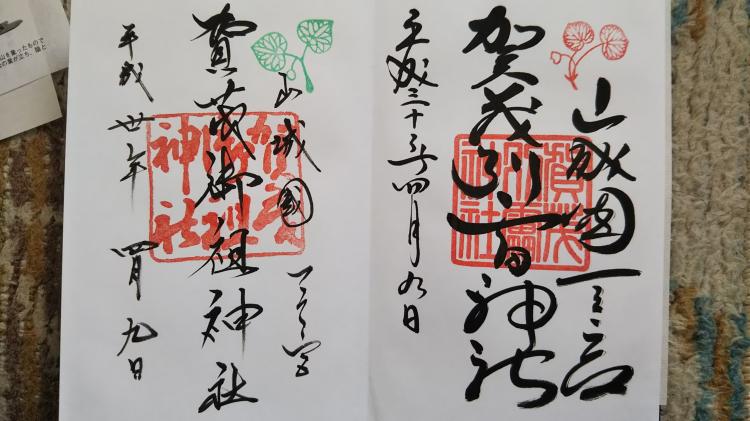 山城國一之宮
賀茂別雷神社
平成三十年四月九日
賀茂別雷神社
山城國
一之宮
賀茂御祖神社
平成卅年
四月九日
賀茂御祖神社